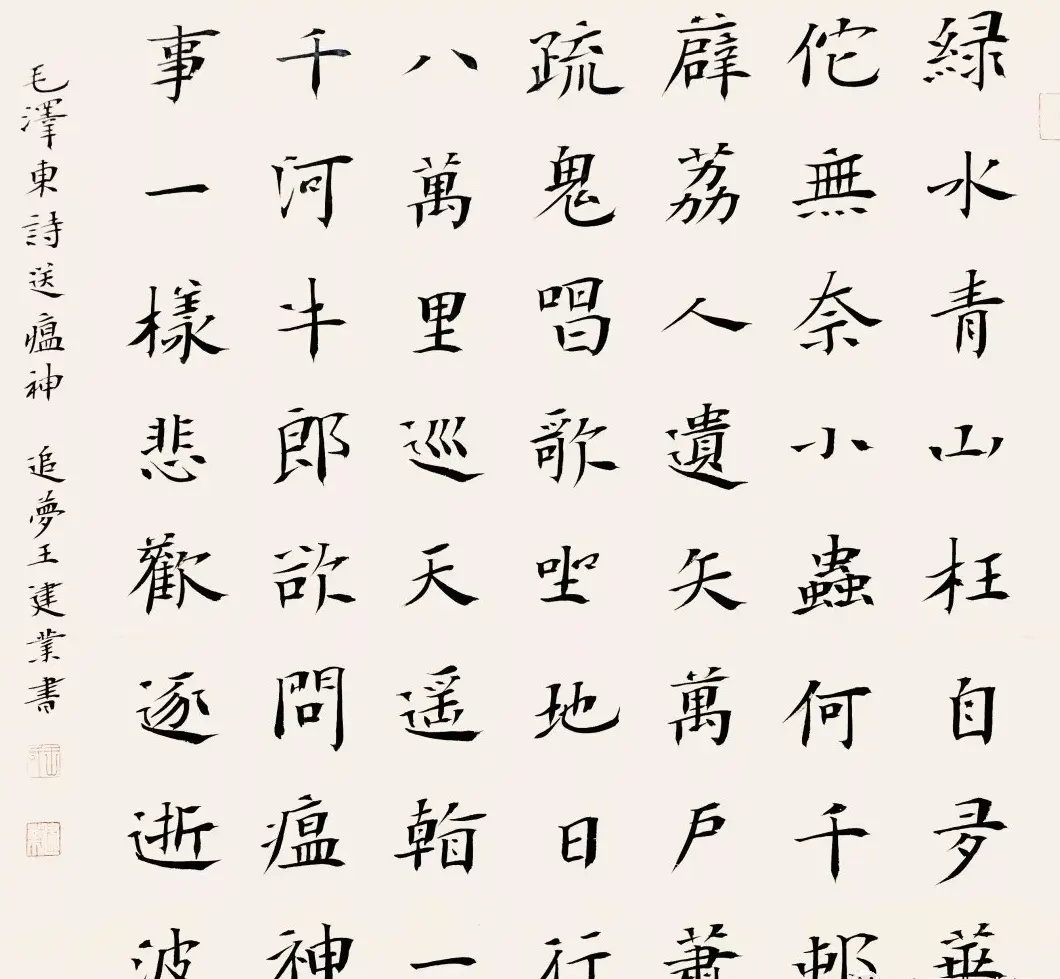 緑水青山枉自多華
佗無奈小蟲何千邨
薜荔人遺矢萬户蕭
疏鬼唱歌坐地日行
八萬里巡天遥看一
千河牛郎欲問瘟神
事一樣悲歡逐逝波
毛澤東詩送瘟神 追夢王建業書